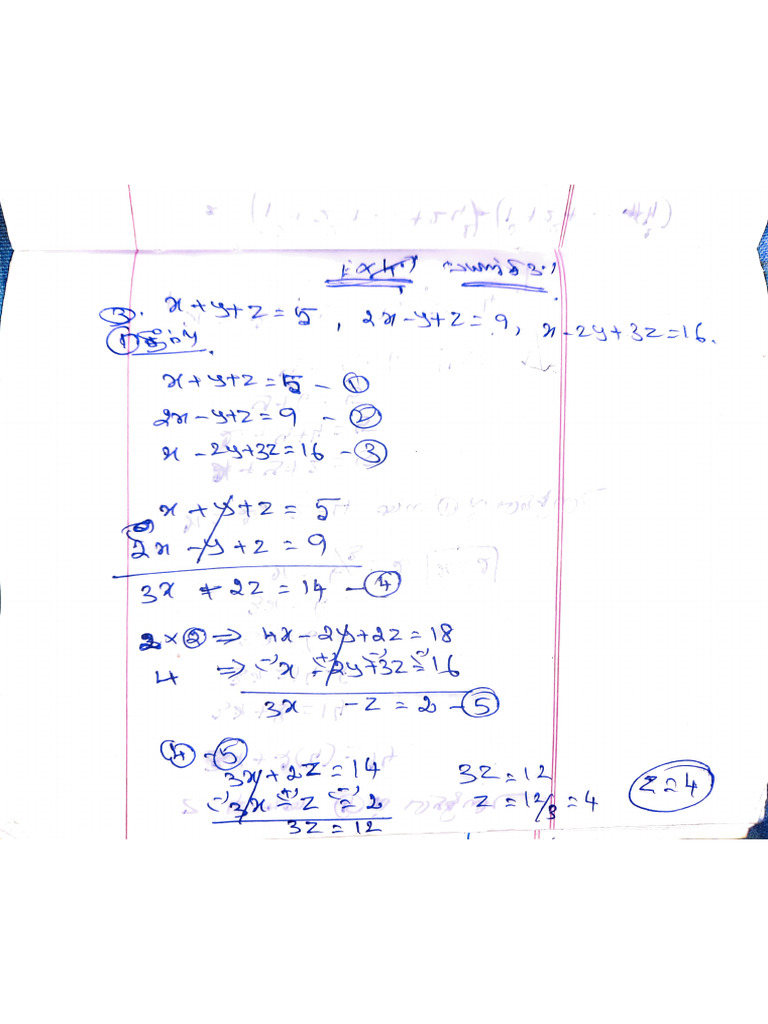 பயிற்சி 3.1
③. x+y+z=5, 2x-y+z=9, x-2y+3z=16.
தீர்வு
x+y+z=5 - ①
2x-y+z=9 - ②
x-2y+3z=16 - ③
x+y+z=5
2x-y+z=9
3x+2z=14 - ④
2×② ⇒ 4x-2y+2z=18
4 ⇒ (-)x (+)- 2y (-)+3z (-)= 16
3x -z = 2 - ⑤
④ - ⑤
3x+2z=14 3z=12 z=4
(-)3x (+)- z (-)= 2 z=12/3=4
3z=12